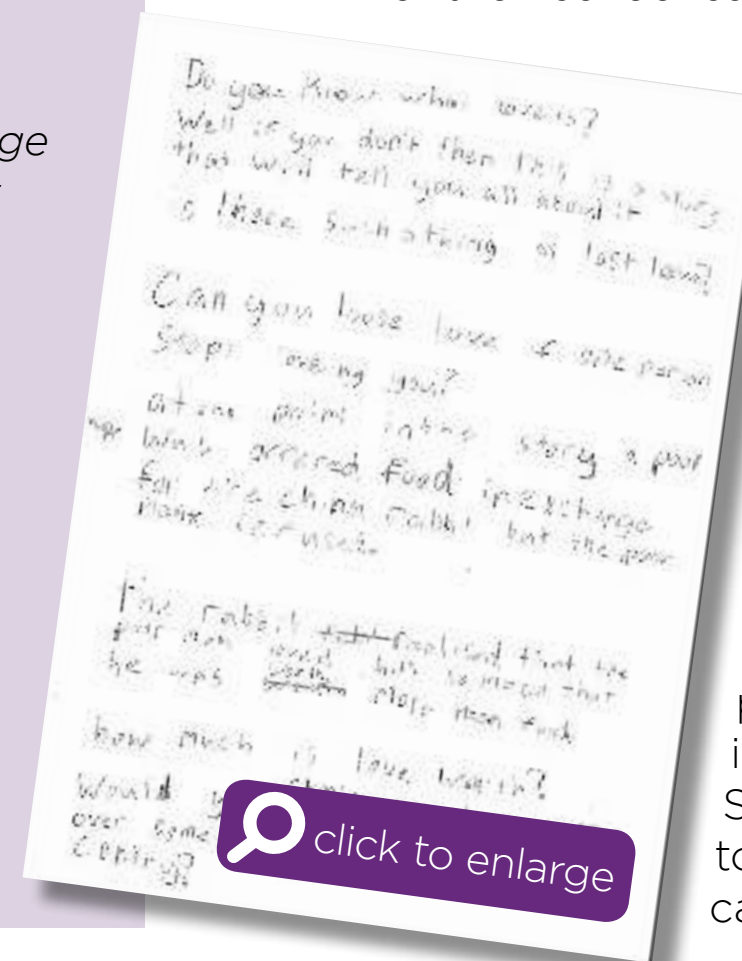 ge
Do you know what love is?
Well if you don't then this is a story
that will tell you all about it
s there such a thing as lost love?
Can you loose love if one person
Stops loving you?
at one point in the story a poor
offered food in exchange
for the china rabbit but the poor
refused.
The rabbit realised that the
poor man loved him so much that
he was worth more than food
how much is love worth?
Would
over some
click to enlarge
i
S
to
ca